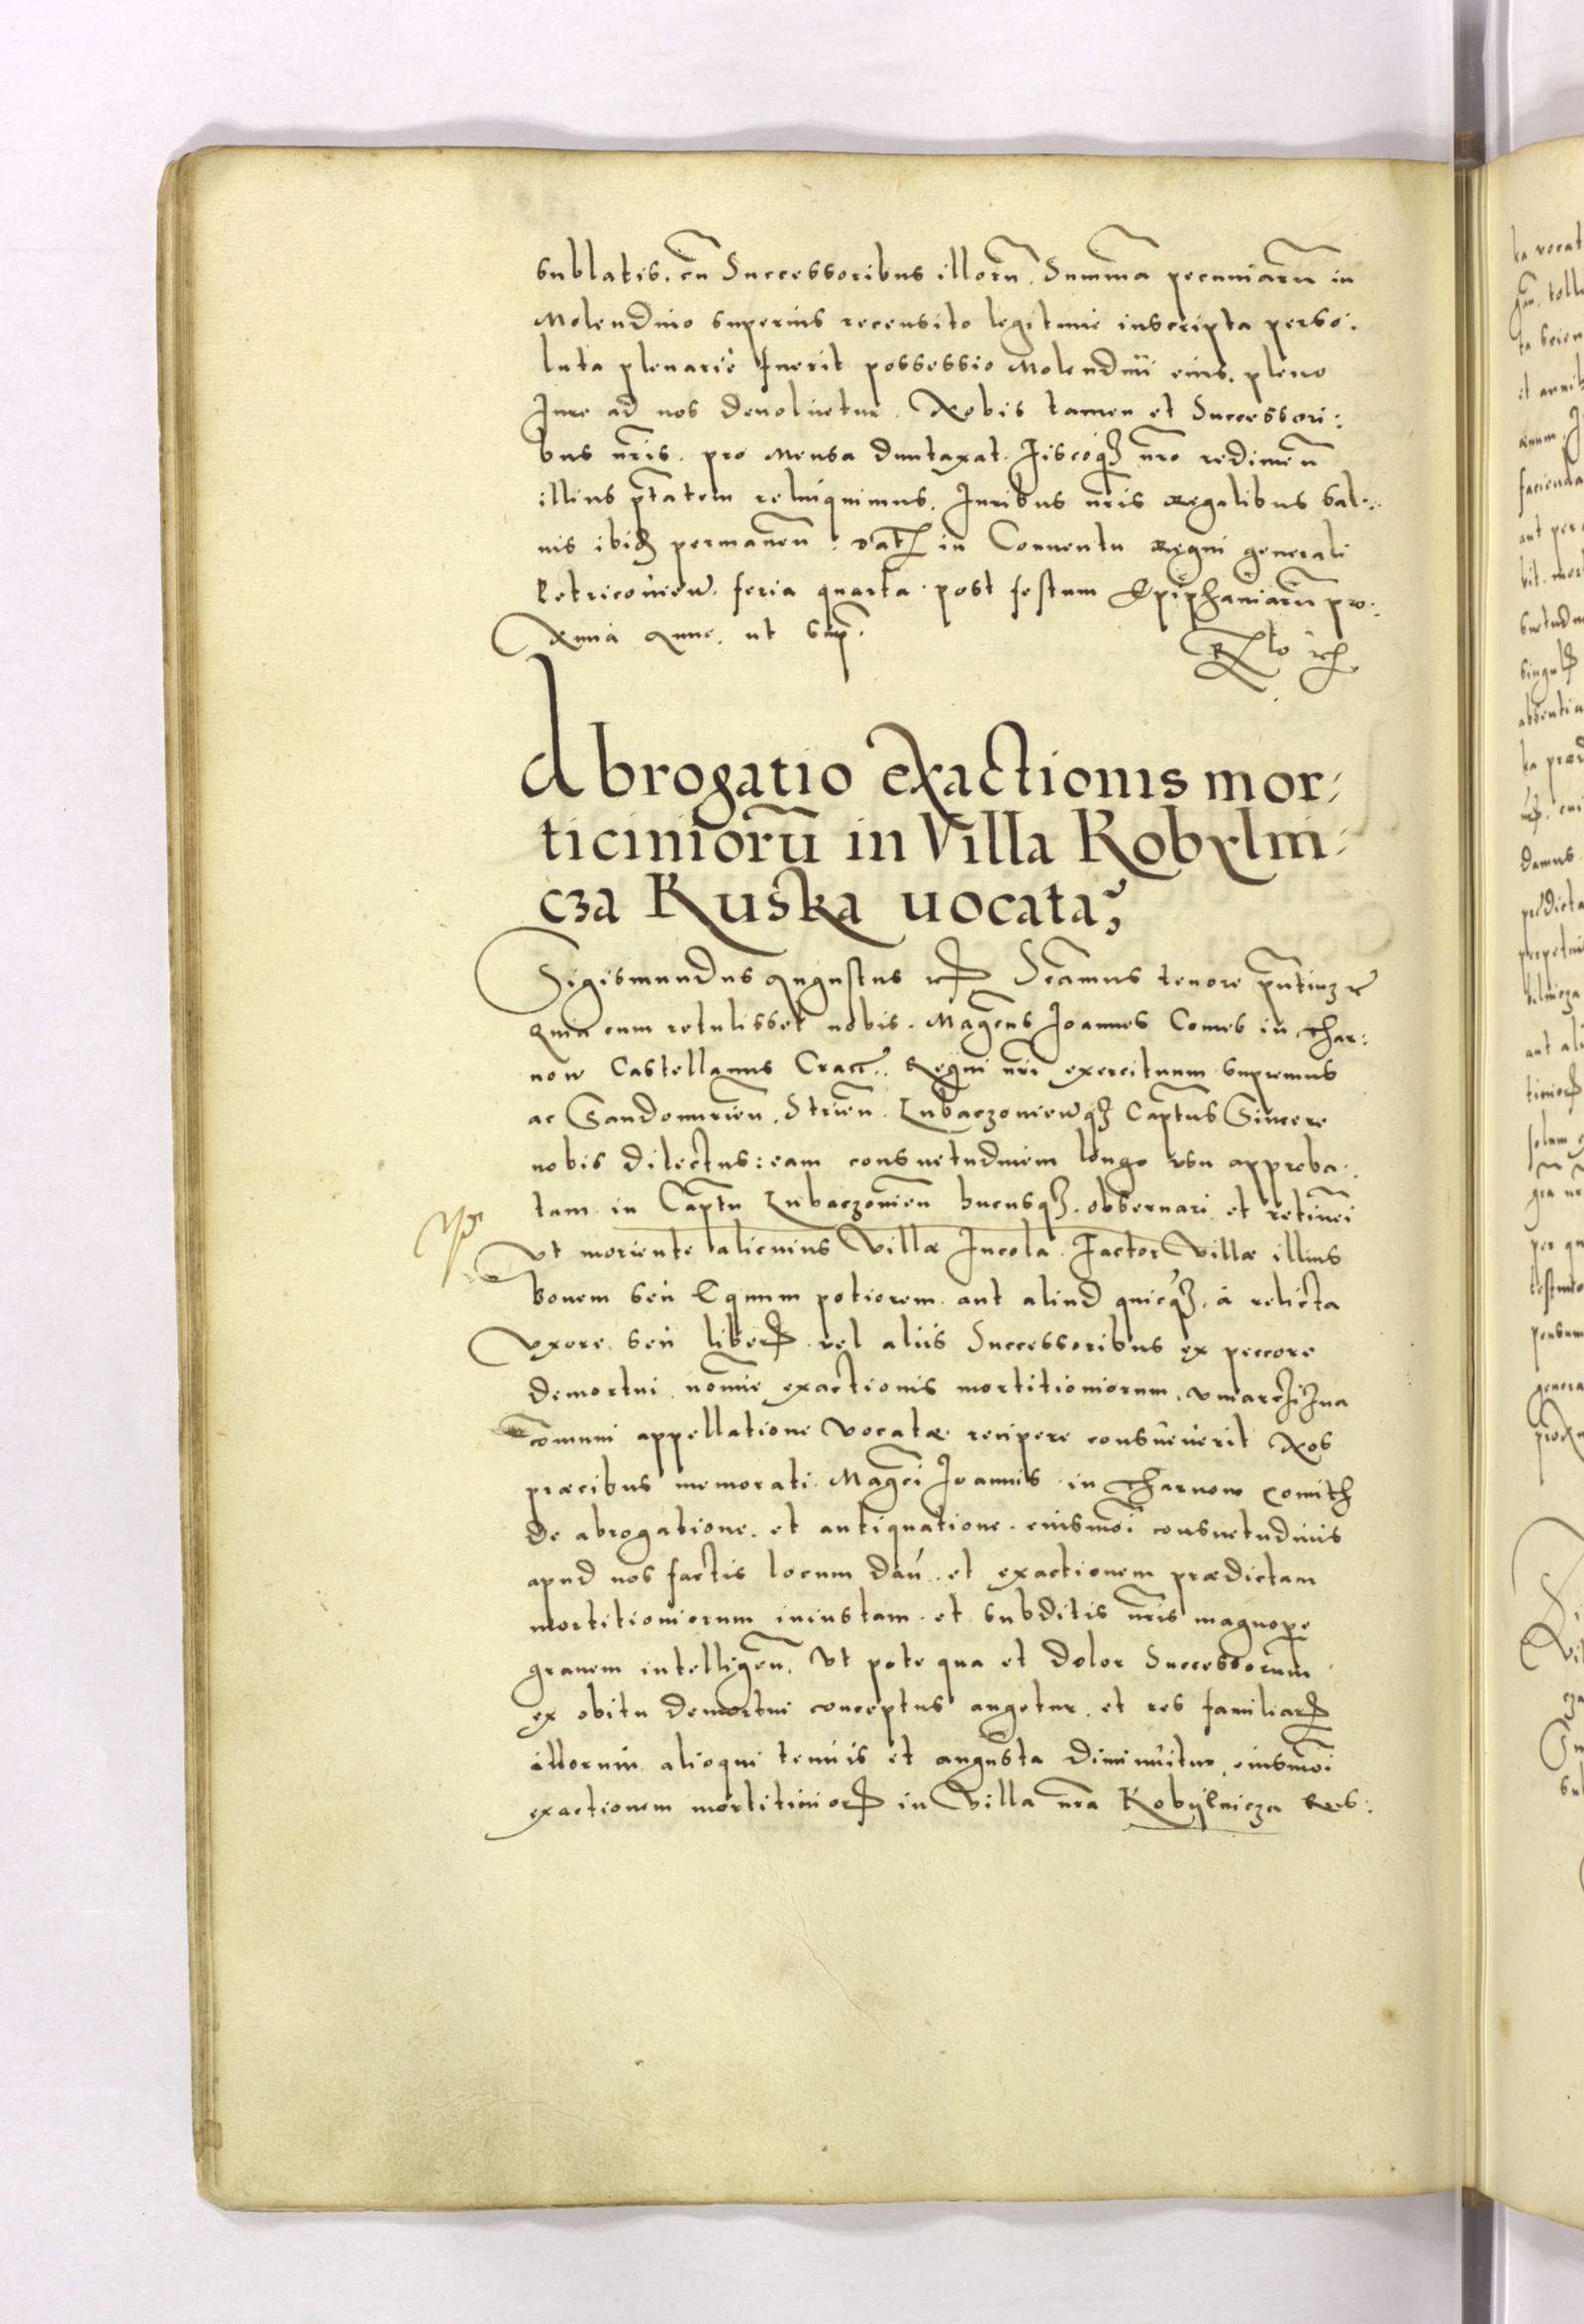 sublatis. cũ Successoribus illorũ. Summa pecuniarũ in
Molendino superius recensito legitime inscripta perso:
luta plenarie fuerit possessio Molendini eius. pleno
Iure ad nos devoluetur. Nobis tamen et Successori:
bus nr̃is. pro Mensa duntaxat. fiscoqꝫ nr̃o redimen̄
illius ptãtem relinquimus. Iuribus nr̃is Regalibus sal:
uis ibid permanen̄: Dat in Conuentu Regni generali
Petricouien̄. feria quarta post festum Epiphaniarũ pro:
xima Anno. ut supͣ.
Abrogatio exactionis mor:
ticiniorũ in Villa Kobylni:
cza Ruska uocata
Sigismundus Augustus Sc̃amus tenore pñtium
Quia cum retulisset nobis. Mag̃cus Ioannes Comes in Thar:
now Castellanus Crac̃. Regni nr̃i exercituum supremus
ac Sandomirien̄. Strien̄. Lubaczouien̄qꝫ Capt̃us Sincere
nobis dilectus: eam consuetudinem longo vsu approba:
tam in Capt̃u Lubaczouien̄ hucusqꝫ. obseruari et retineri
Vt moriente alicuius Villæ Incola. Factor Villæ illius
bouem seu Equum potiorem aut aliud quicqꝫ. à relicta
Vxore seu liber. vel aliis Successoribus ex peccore
demortui nomine exactionis mortitioniorum.
comuni appellatione vocatæ recipere consueuerit Nos
præcibus memorati Mag̃ci Ioannis in Tharnow Comit
de abrogatione. et antiquatione. eiusmõi consuetudinis
apud nos factis locum dan̄. et exactionem prædictam
mortitioniorum iniustam et subditis nr̃is magnope
grauem intelligen̄. Vt pote qua et dolor Successorum
ex obitu demortui conceptus augetur. et res familiar
illorum alioqui tenuis et angusta diminuitur. eiusmõi
exactionem mortitinior in Villa nr̃a Kobylnicza Rus: